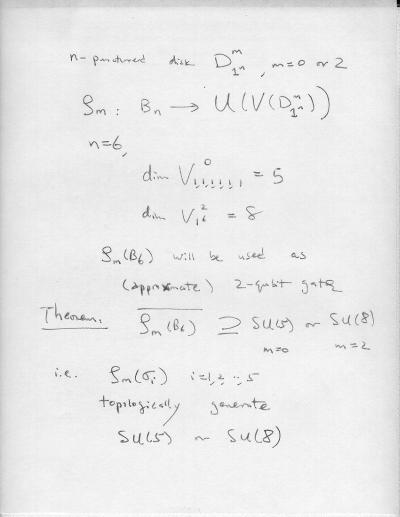 n-punctured disk D^m_{1^n}, m=0 or 2
ρ_m : B_n → U(V(D^m_{1^n}))
n=6,
dim V^0_{1,1,1,1,1,1} = 5
dim V^2_{1^6} = 8
ρ_m(B_6) will be used as
(approximate) 2-qubit gates
Theorem: \overline{ρ_m(B_6)} ⊇ SU(5) or SU(8)
m=0 m=2
i.e. ρ_m(σ_i) i=1,2,..,5
topologically generate
SU(5) or SU(8)